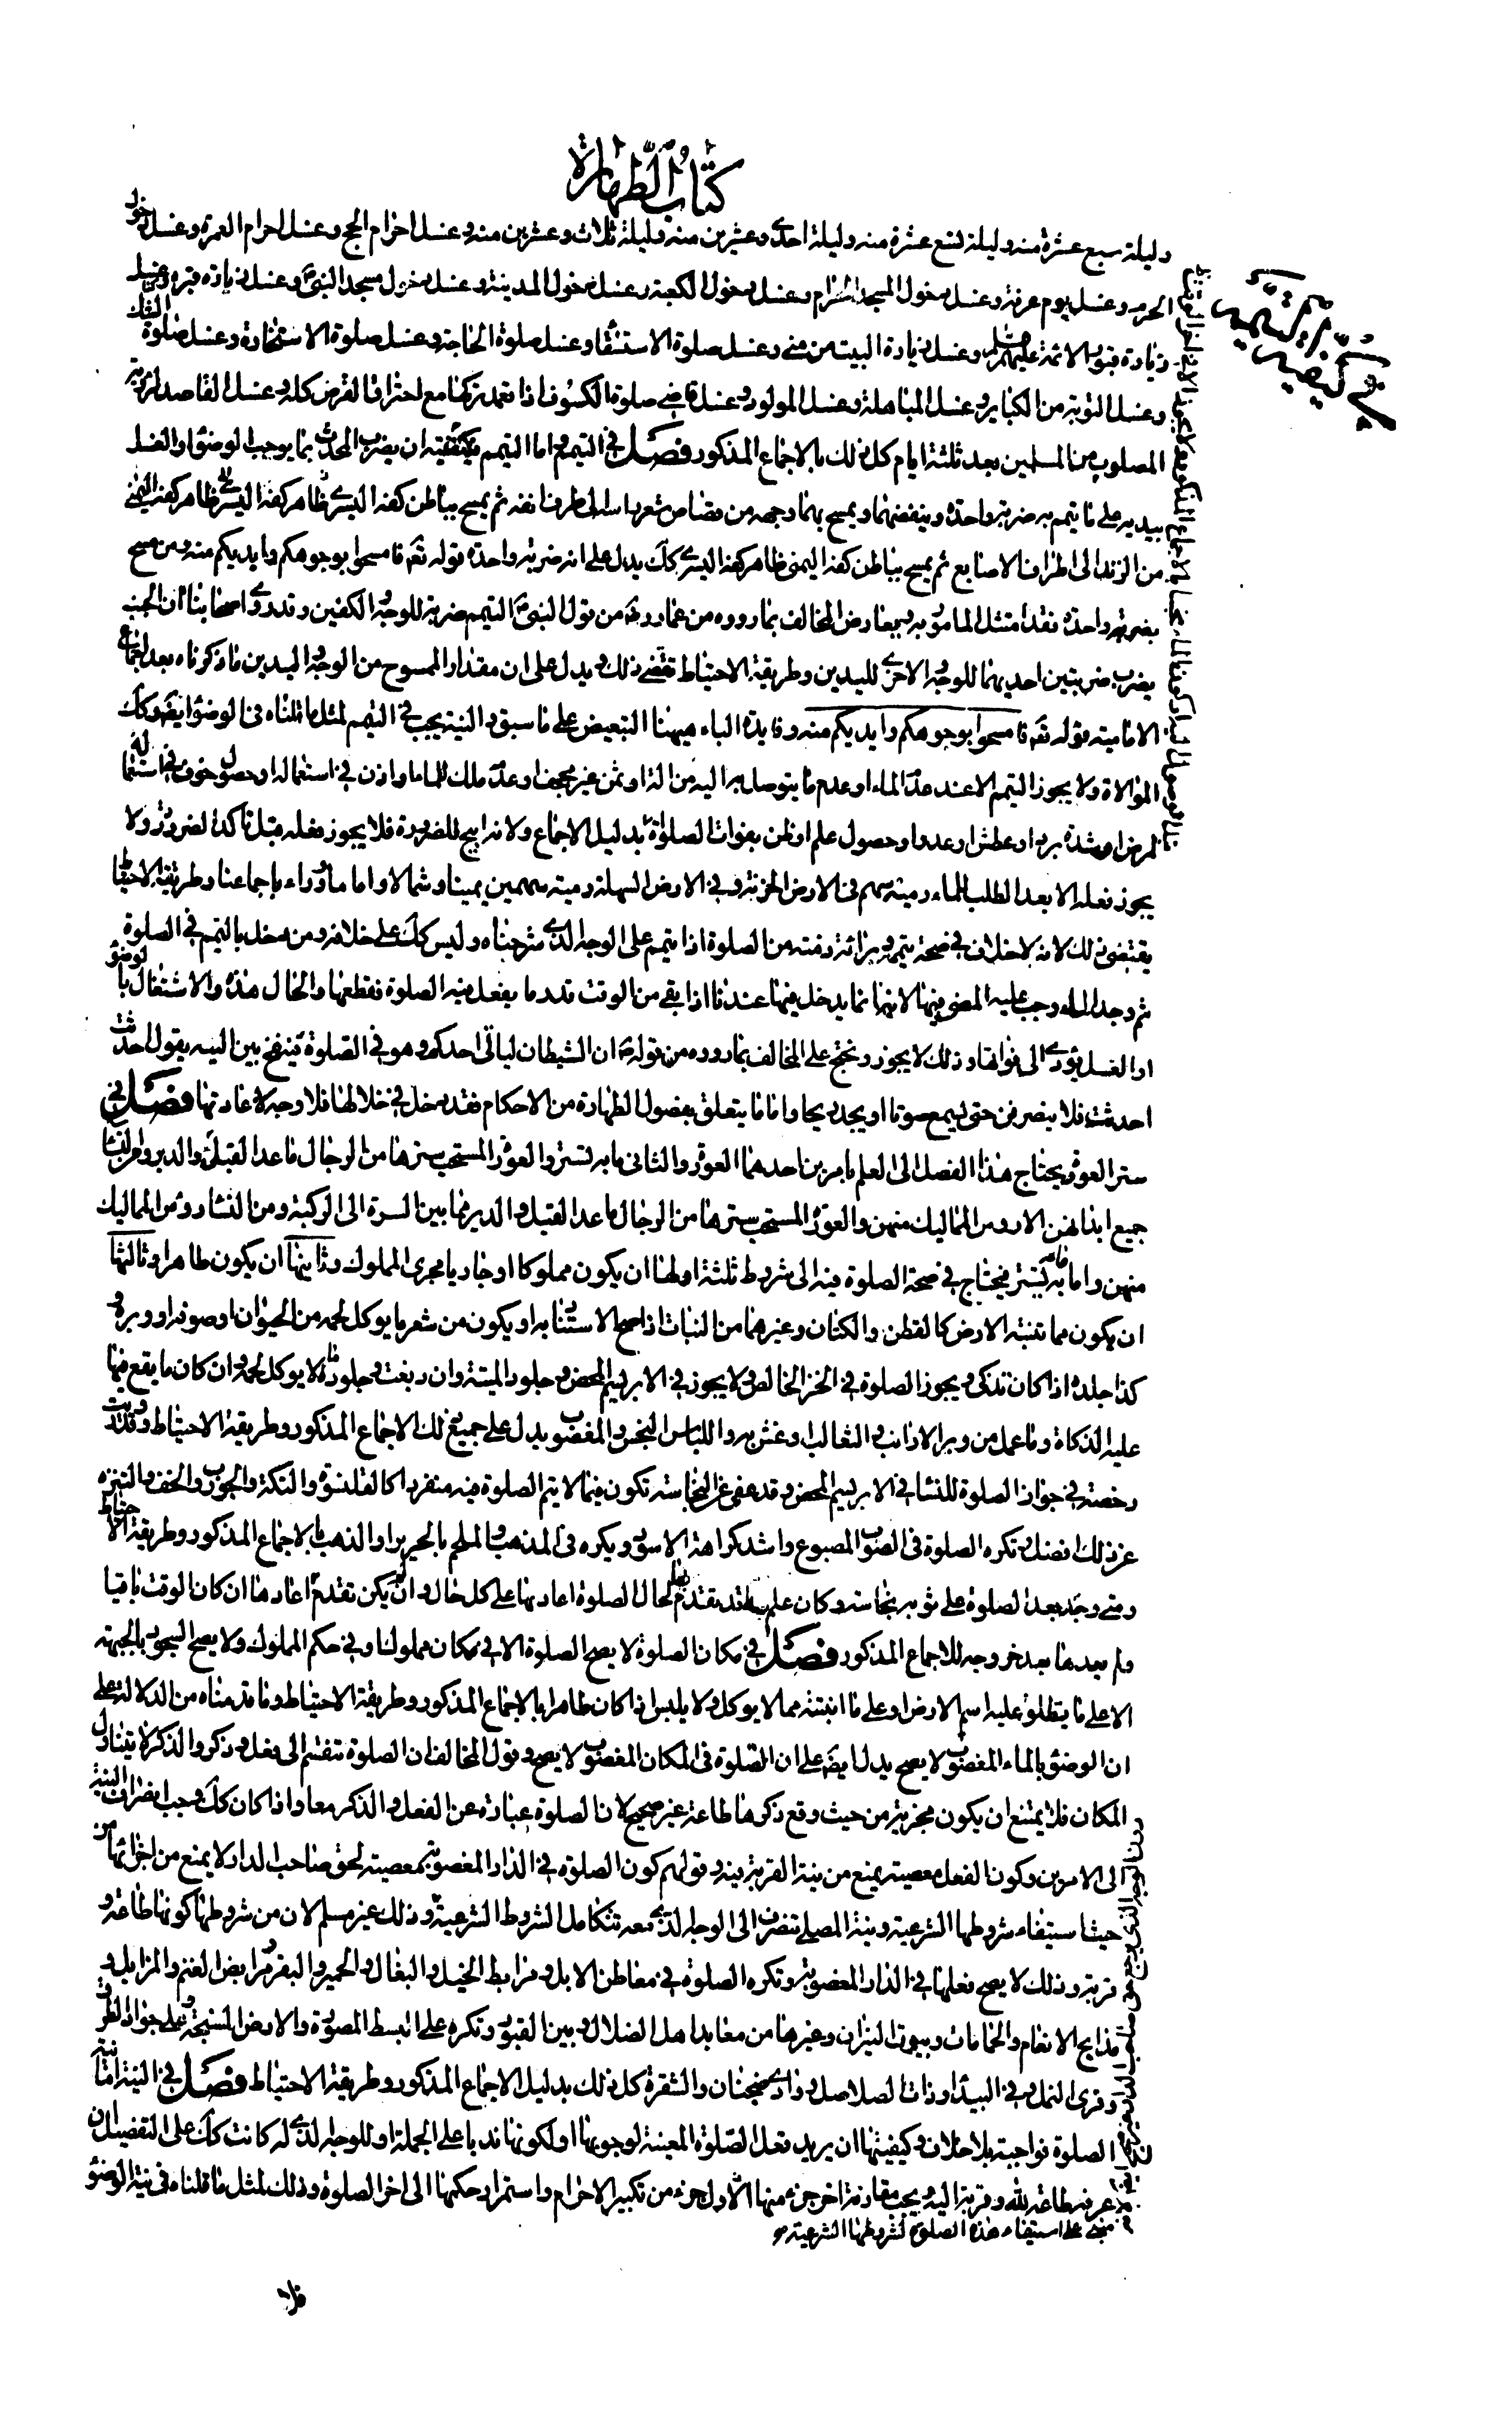 كتاب الطهارة
وليلة سبع عشرة منه وليلة تسع عشرة منه وليلة احدى وعشرين منه وليلة ثلاث وعشرين منه وغسل احرام الحج وغسل احرام العمرة وغسل دخول
الحرم وغسل يوم عرفة وغسل دخول المسجد الحرام وغسل دخول الكعبة وغسل دخول المدينة وغسل دخول مسجد النبي وغسل زيادة قبره وغسل
زيادة قبور الائمة عليهم وغسل زيادة البيت من منى وغسل صلوة الاستسقا وغسل صلوة الحاجة وغسل صلوة الاستخارة وغسل صلوة الشكر
وغسل التوبة من الكباير وغسل المباهلة وغسل المولود وغسل قاضي صلوة الكسوف اذا تعمد تركها مع احتراق القرص كله وغسل القاصد لرؤية
المصلوب من المسلمين بعد ثلثة ايام كل ذلك بالاجماع المذكور فصل في التيمم واما التيمم فكيفيته ان يضرب المحدث بما يوجب الوضوء او الغسل
بيديه على ما يتيمم به ضربة واحدة وينفضهما ويمسح بهما وجهه من قصاص شعر راسه الى طرف انفه ثم يمسح بباطن كفه اليسرى ظاهر كفه اليمنى
من الزند الى اطراف الاصابع ثم يمسح بباطن كفه اليمنى ظاهر كفه اليسرى كك يدل على انه ضربة واحدة قوله تعه فامسحوا بوجوهكم وايديكم منه ومن مسح
بضربة واحدة فقد امتثل المامور به ويعارض المخالف بما رووه من عمار وغيره من قول النبي التيمم ضربة للوجه والكفين وقد روى اصحابنا ان الجنب
يضرب ضربتين احديهما للوجه والاخرى لليدين وطريقة الاحتياط تقتضي ذلك ويدل على ان مقدار الممسوح من الوجه واليدين ما ذكرناه بعد اجماع
الامامية قوله تعه فامسحوا بوجوهكم وايديكم منه وفايدة الباء هيهنا التبعيض على ما سبق والنية يجب في التيمم لمثل ما قلناه في الوضوء ايضه وكك
الموالاة ولا يجوز التيمم الا عند عدم الماء او عدم ما يتوصل به اليه من الة او ثمن غير مجحف او عدم ملك للماء او اذن في استعماله او حصول خوف في استعماله
لمرض او شدة برد او عطش او عدو او حصول علم او ظن بفوات الصلوة بدليل الاجماع ولانه ابيح للضرورة فلا يجوز فعله قبل تاكد الضرورة ولا
يجوز فعله الا بعد الطلب للماء رمية سهم في الارض الحزنة وفي الارض السهلة رمية سهمين يمينا وشمالا واماما ووراء باجماعنا وطريقة الاحتياط
يقتضي ذلك لانه لا خلاف في صحة تيممه وبرائة ذمته من الصلوة اذا تيمم على الوجه الذي شرحناه وليس كك على خلافه ومن دخل بالتيمم في الصلوة
ثم وجد الماء وجب عليه المضي فيها لانه انما يدخل فيها عندنا اذا بقي من الوقت قدر ما يفعل فيه الصلوة فقطعها والحال هذه والاشتغال بالوضوء
او الغسل يؤدى الى فواتها وذلك لا يجوز ونحتج على المخالف بما رووه من قوله ان الشيطان لياتي احدكم وهو في الصلوة فينفخ بين اليه يقول احدثت
احدثت فلا ينصرفن حتى يسمع صوتا او يجد ريحا واما ما يتعلق بفصول الطهارة من الاحكام فقد دخل في خلالها فلا وجه لاعادتها فصل في
ستر العورة يحتاج هذا الفصل الى العلم بامرين احدهما العورة والثاني ما به تستر والعورة المستحب سترها من الرجال ما عدا القبل والدبر ومن النساء
جميع ابدانهن الا رؤس المماليك منهن والعورة المستحب سترها من الرجال ما عدا القبل والدبر مما بين السرة الى الركبة ومن النساء رؤس المماليك
منهن واما ما به تستر فيحتاج في صحة الصلوة فيه الى شروط ثلثة اولها ان يكون مملوكا او جاريا مجرى المملوك وثانيها ان يكون طاهرا وثالثها
ان يكون مما تنبته الارض كالقطن والكتان وغيرهما من النبات اذا صح الاستتار به او يكون من شعر ما يوكل لحمه من الحيوان او صوفه او وبره و
كذا جلده اذا كان تذكى ويجوز الصلوة في الخز الخالص ولا يجوز في الابريسم المحض وجلود الميتة وان دبغت وجلود ما لا يوكل لحمه وان كان ما يقع فيها
عليه الذكاة وما عمل من وبر الارانب والثعالب او غش به واللباس النجس والمغصوب يدل على جميع ذلك الاجماع المذكور وطريقة الاحتياط وقد وردت
رخصة في جواز الصلوة للنساء في الابريسم المحض وقد عفي عن النجاسة تكون فيما لا يتم الصلوة فيه منفردا كالقلنسوة والتكة والجورب والخف والتنزه
عن ذلك افضل وتكره الصلوة في الثوب المصبوغ واشد كراهة الاسود ويكره في المذهب والملحم بالحرير او الذهب بالاجماع المذكور وطريقة الاحتياط
ومتى وجد بعد الصلوة على ثوبه نجاسة وكان علمه بها قد تقدم لحال الصلوة اعادها على كل حال وان لم يكن تقدم اعادها ان كان الوقت باقيا
ولم يعدها بعد خروجه للاجماع المذكور فصل في مكان الصلوة لا يصح الصلوة الا في مكان مملوك او في حكم المملوك ولا يصح السجود بالجبهة
الا على ما يطلق عليه اسم الارض او على ما انبتته مما لا يوكل ولا يلبس اذا كان طاهرا بالاجماع المذكور وطريقة الاحتياط وما قدمناه من الدلالة على
ان الوضوء بالماء المغصوب لا يصح يدل ايضه على ان الصلوة في المكان المغصوب لا يصح وقول المخالف ان الصلوة تنقسم الى فعل وذكر والذكر لا يتناول
المكان فلا يمتنع ان يكون مجزية من حيث وقع ذكرها طاعة غير صحيح لان الصلوة عبارة عن الفعل والذكر معا واذا كان كك وجب انصراف النية
الى الامرين وكون الفعل معصية يمنع من نية القربة فيه وقولهم كون الصلوة في الدار المغصوبة معصية لحق صاحب الدار لا يمنع من اجزائها من
حيث استيفاء شروطها الشرعية ونية المصلي تنصرف الى الوجه الذي معه تتكامل الشروط الشرعية وذلك غير مسلم لان من شروطها كونها طاعة و
قربة وذلك لا يصح فعلها في الدار المغصوبة وتكره الصلوة في معاطن الابل ومرابط الخيل والبغال والحمير والبقر ومرابض الغنم والمزابل و
مذابح الانعام والحمامات وبيوت النيران وغيرها من معابد اهل الضلال وبين القبور وتكره على البسط المصورة والارض السبخة وعلى جواد الطرق
وقرى النمل وفي البيداء وذات الصلاصل ووادي ضجنان والشقرة كل ذلك بدليل الاجماع المذكور وطريقة الاحتياط فصل في النية اما نية
الصلوة فواجبة بلا خلاف وكيفيتها ان يريد فعل الصلوة المعينة لوجوبها او لكونها ندبا على الجملة او للوجه الذي له كانت كك على التفصيل ان
عرفه طاعة لله وقربة اليه ويجب مقارنة اخر جزء منها لاول جزء من تكبير الاحرام واستمرار حكمها الى اخر الصلوة وذلك لمثل ما قلناه في نية الوضوء
مبني على استيفاء هذه الصلوة لشروطها الشرعية
فلا